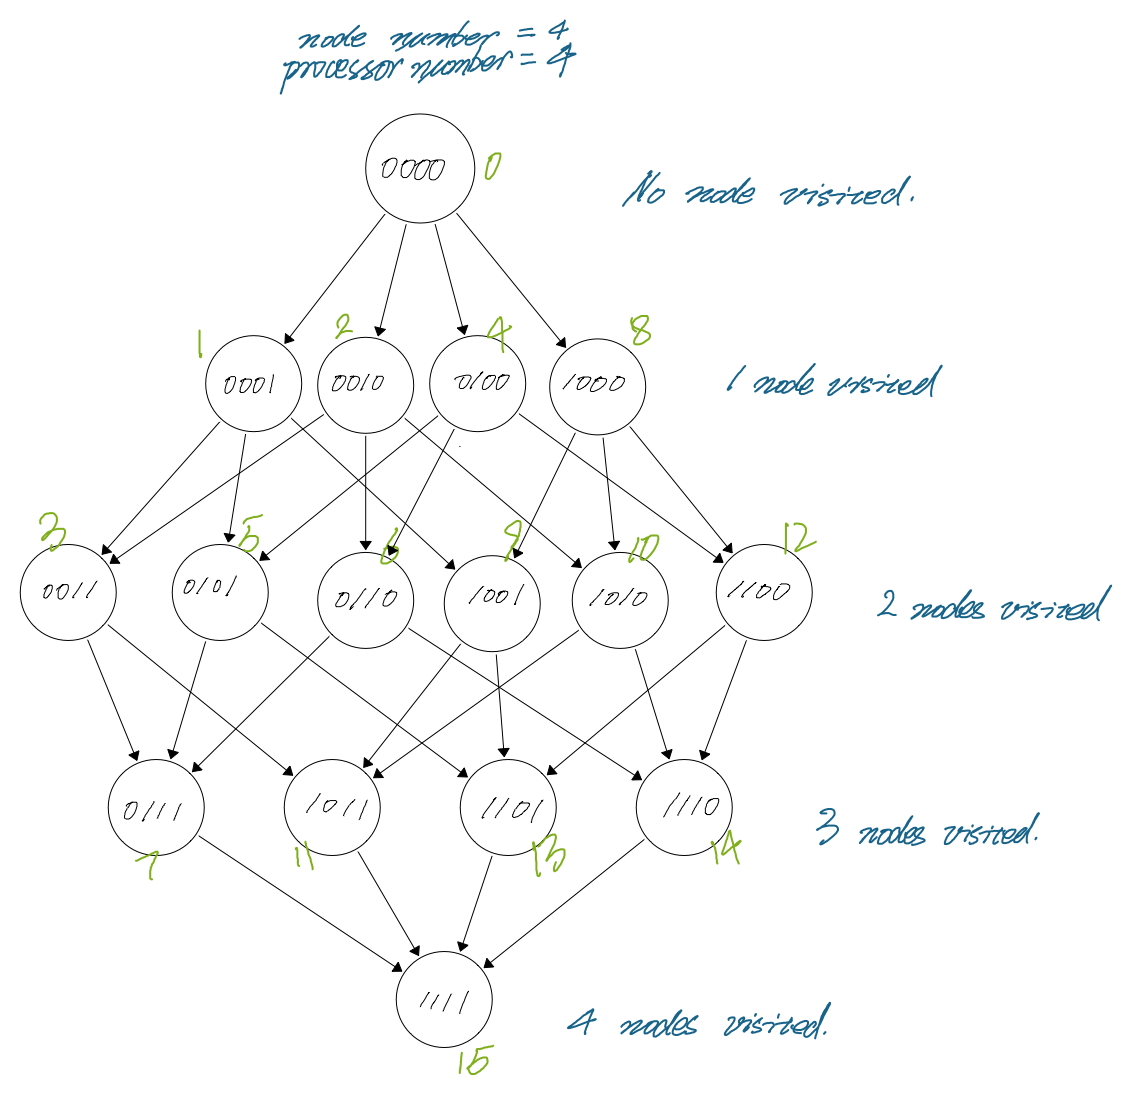 node number = 4
processor number = 4
0000 0
No node visited.
1 2 4 8
0001 0010 0100 1000
1 node visited
3 5 6 9 10 12
0011 0101 0110 1001 1010 1100
2 nodes visited
0111 1011 1101 1110
3 nodes visited.
7 11 13 14
1111
4 nodes visited.
15